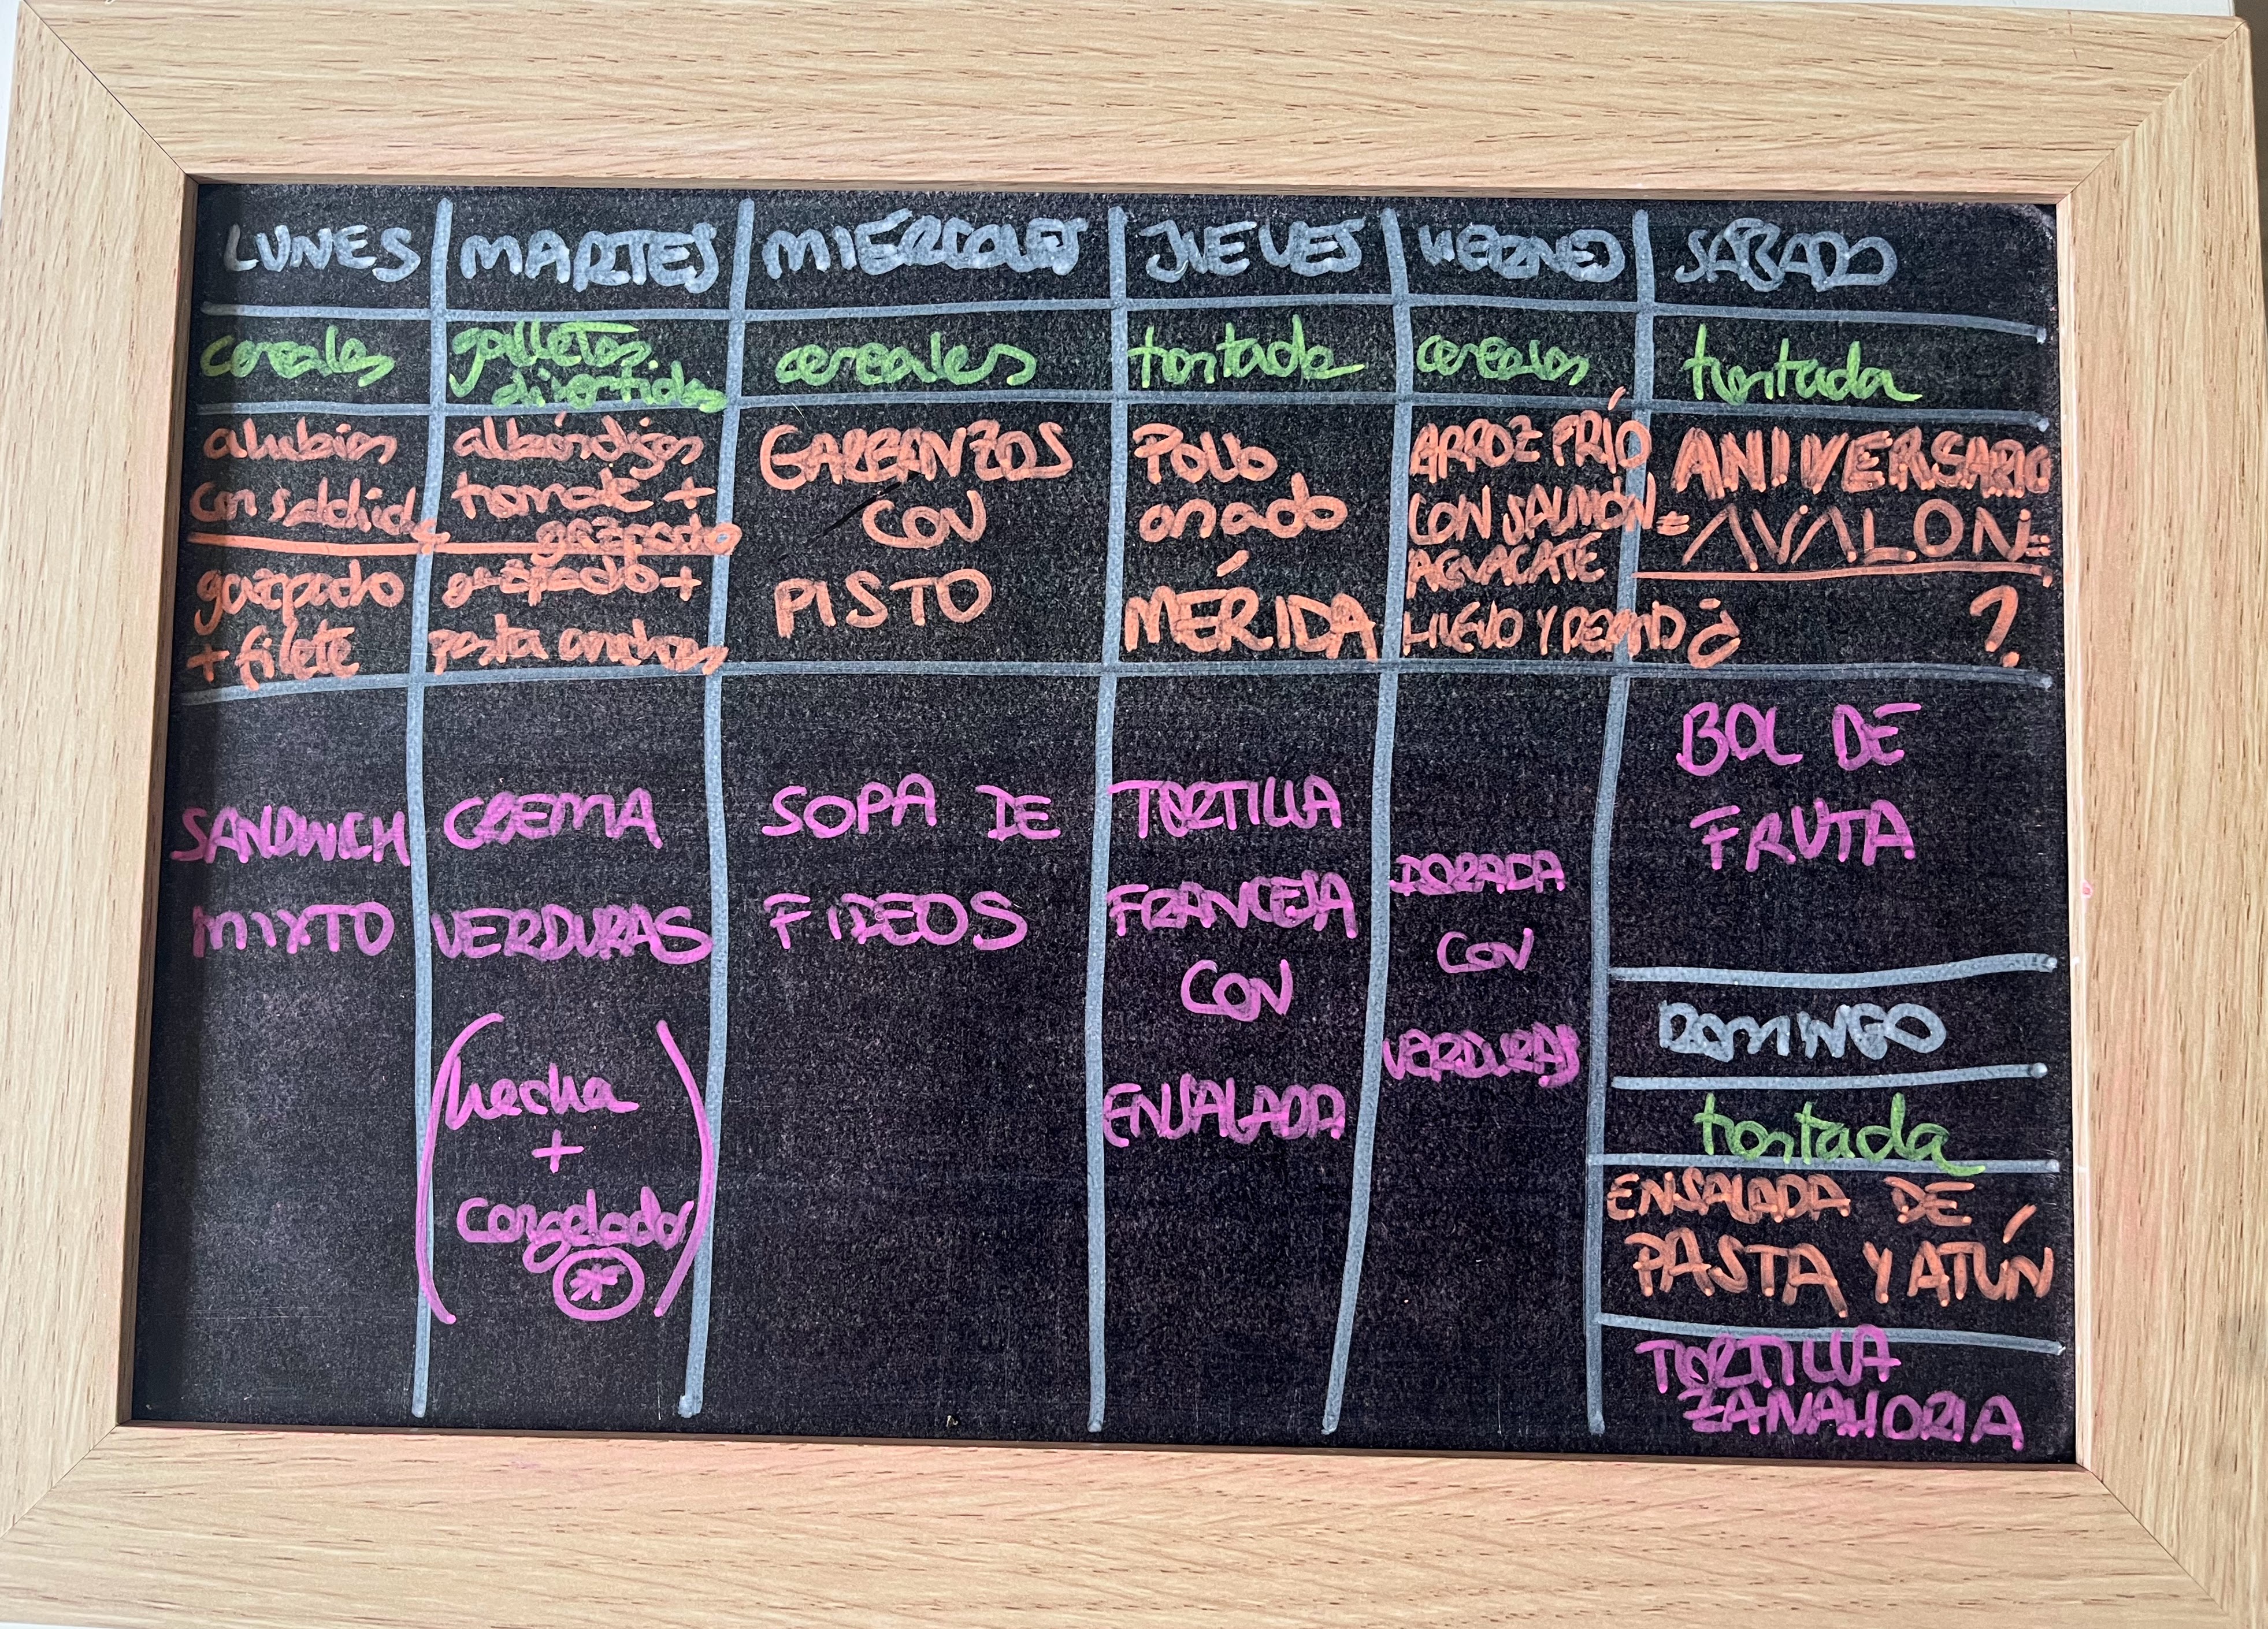 LUNES MARTES MIÉRCOLES JUEVES VIERNES SÁBADO
cereales galletas divertidas cereales tostada cereales tostada
alubias
con salchichas
gazpacho
+ filete
albóndigas
tomate +
gazpacho
gazpacho +
pasta anchoas
GARBANZOS
CON
PISTO
Pollo
asado
MÉRIDA
ARROZ FRÍO
CON SALMÓN
AGUACATE
HUEVO Y PEPINO
ANIVERSARIO
=AVALON=
¿ ?
SANDWICH
MIXTO
CREMA
VERDURAS
(hecha
+
congelada)
*
SOPA DE
FIDEOS
TORTILLA
FRANCESA
CON
ENSALADA
DORADA
CON
VERDURAS
BOL DE
FRUTA
DOMINGO
tostada
ENSALADA DE
PASTA Y ATÚN
TORTILLA
ZANAHORIA